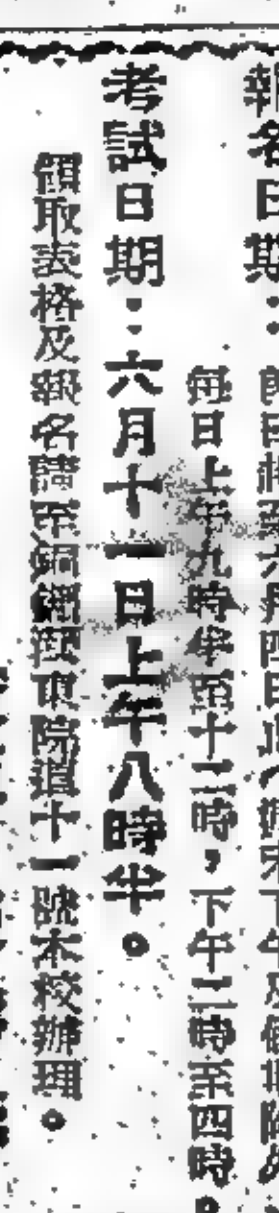 報名日期：即日起至六月四日止（週末下午及假期除外
每日上午九時半至十二時，下午二時至四時。
考試日期：六月十一日上午八時半。
領取表格及報名請至銅鑼灣東院道十一號本校辦理。